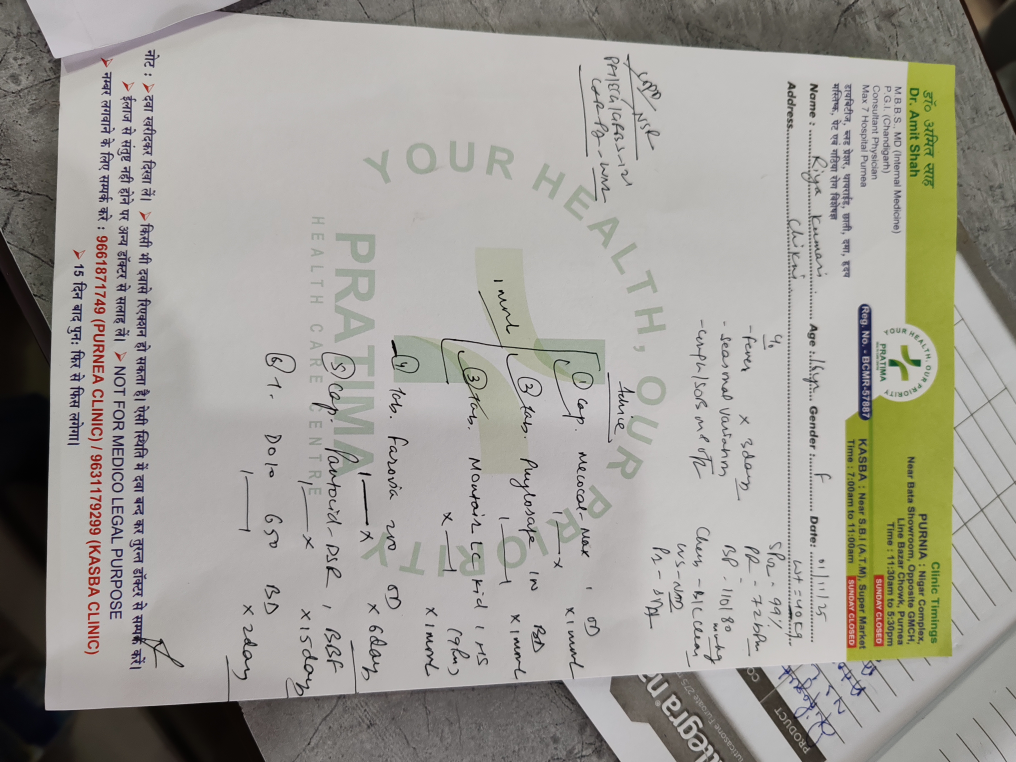 डॉ० अमित साह
Dr. Amit Shah
M.B.B.S., MD (Internal Medicine)
P.G.I. (Chandigarh)
Consultant Physician
Max 7 Hospital Purnea
डायबिटीज, ब्लड प्रेशर, थायराईड, छाती, दमा, हृदय
मस्तिष्क, पेट एवं गठिया रोग विशेषज्ञ
YOUR HEALTH, OUR PRIORITY
PRATIMA
Reg. No. - BCMR-57887
Clinic Timings
PURNIA : Nigar Complex,
Near Bata Showroom, Opposite GMCH,
Line Bazar Chowk, Purnea
Time : 11:30am to 5:30pm
SUNDAY CLOSED
KASBA : Near S.B.I (A.T.M), Super Market
Time : 7:00am to 11:00am SUNDAY CLOSED
Name : Riya Kumari Age : 16yr Gender : F Date: 01/11/25
Address Chikni Wt = 40kg
- fever x 3 days
- seasonal variation
SPO2 - 99%
PR - 72 bpm
BP - 110/80 mmHg
Chest - B/L clear
Advice
① Cap. Mecocad-max 1 OD
1 — x x 1 month
② Tab. Phylosafe 1N BD
1 — 1 x 1 month
③ Tab. Montair LC kid 1 HS
x — 1 (9pm) x 1 month
1 month
④ Tab. Farovia 200 OD
1 — x x 6 days
⑤ Cap. Pantocid-DSR 1 BBF
1 — x x 15 days
⑥ T. Dolo 650 BD
1 — 1 x 2 days
YOUR HEALTH, OUR PRIORITY
PRATIMA
HEALTH CARE CENTRE
नोट : ➤ दवा खरीदकर दिखा लें। ➤ किसी भी दवासे रिएक्शन हो सकता है। ऐसी स्थिति में दवा बन्द कर तुरन्त डॉक्टर से सम्पर्क करें।
➤ ईलाज से संतुष्ट नहीं होने पर अन्य डॉक्टर से सलाह लें। ➤ NOT FOR MEDICO LEGAL PURPOSE
➤ नम्बर लगवाने के लिए सम्पर्क करें : 9661871749 (PURNEA CLINIC) / 9631179299 (KASBA CLINIC)
➤ 15 दिन बाद पुनः फिर से फिस लगेगा।
PRODUCT